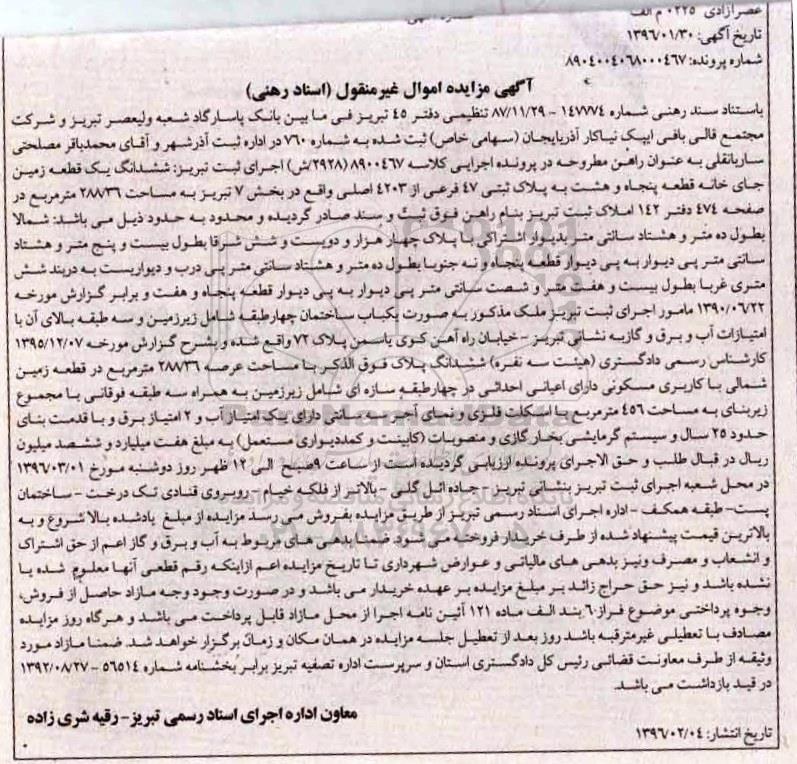 عصرآزادی ۰۲۲۵ م الف
تاریخ آگهی: ۱۳۹۶/۰۱/۳۰
شماره پرونده: ۸۹۰۴۰۰۴۰۶۸۰۰۰۴۶۷
آگهی مزایده اموال غیرمنقول (اسناد رهنی)
باستناد سند رهنی شماره ۱۴۷۷۷۴ - ۸۷/۱۱/۲۹ تنظیمی دفتر ۴۵ تبریز فی ما بین بانک پاسارگاد شعبه ولیعصر تبریز و شرکت
مجتمع قالی بافی ایپک نیاکار آذربایجان (سهامی خاص) ثبت شده به شماره ۷۶۰ در اداره ثبت آذرشهر و آقای محمدباقر مصلحتی
ساربانقلی به عنوان راهن مطروحه در پرونده اجرایی کلاسه ۸۹۰۰۴۶۷ (۲۹۲۸/ش) اجرای ثبت تبریز: ششدانگ یک قطعه زمین
جای خانه قطعه پنجاه و هشت به پلاک ثبتی ۴۷ فرعی از ۴۲۰۳ اصلی واقع در بخش ۷ تبریز به مساحت ۲۸۸/۳۶ مترمربع در
صفحه ۴۷۴ دفتر ۱۴۲ املاک ثبت تبریز بنام راهن فوق ثبت و سند صادر گردیده و محدود به حدود ذیل می باشد: شمالا
بطول ده متر و هشتاد سانتی متر بدیوار اشتراکی با پلاک چهار هزار و دویست و شش شرقا بطول بیست و پنج متر و هشتاد
سانتی متر پی دیوار به پی دیوار قطعه پنجاه و نه جنوبا بطول ده متر و هشتاد سانتی متر پی درب و دیواریست به دربند شش
متری غربا بطول بیست و هفت متر و شصت سانتی متر پی دیوار به پی دیوار قطعه پنجاه و هفت و برابر گزارش مورخه
۱۳۹۰/۰۶/۲۲ مامور اجرای ثبت تبریز ملک مذکور به صورت یکباب ساختمان چهارطبقه شامل زیرزمین و سه طبقه بالای آن با
امتیازات آب و برق و گاز به نشانی تبریز - خیابان راه آهن کوی یاسمن پلاک ۷۲ واقع شده و بشرح گزارش مورخه ۱۳۹۵/۱۲/۰۷
کارشناس رسمی دادگستری (هیئت سه نفره) ششدانگ پلاک فوق الذکر با مساحت عرصه ۲۸۸/۳۶ مترمربع در قطعه زمین
شمالی با کاربری مسکونی دارای اعیانی احداثی در چهارطبقه سازه ای شامل زیرزمین به همراه سه طبقه فوقانی با مجموع
زیربنای به مساحت ۴۵۶ مترمربع با اسکلت فلزی و نمای آجر سه سانتی دارای یک امتیاز آب و ۲ امتیاز برق و با قدمت بنای
حدود ۲۵ سال و سیستم گرمایشی بخار گازی و منصوبات (کابینت و کمددیواری مستعمل) به مبلغ هفت میلیارد و ششصد میلیون
ریال در قبال طلب و حق الاجرای پرونده ارزیابی گردیده است از ساعت ۹صبح الی ۱۲ ظهر روز دوشنبه مورخ ۱۳۹۶/۰۳/۰۱
در محل شعبه اجرای ثبت تبریز بنشانی تبریز - جاده ائل گلی - بالاتر از فلکه خیام - روبروی قنادی تک درخت - ساختمان
پست- طبقه همکف - اداره اجرای اسناد رسمی تبریز از طریق مزایده بفروش می رسد مزایده از مبلغ یادشده بالا شروع و به
بالاترین قیمت پیشنهاد شده از طرف خریدار فروخته می شود ضمنا بدهی های مربوط به آب و برق و گاز اعم از حق اشتراک
و انشعاب و مصرف ونیز بدهی های مالیاتی و عوارض شهرداری تا تاریخ مزایده اعم ازاینکه رقم قطعی آنها معلوم شده یا
نشده باشد و نیز حق حراج زائد بر مبلغ مزایده بر عهده خریدار می باشد و در صورت وجود وجه مازاد حاصل از فروش،
وجوه پرداختی موضوع فراز۶ بند الف ماده ۱۲۱ آئین نامه اجرا از محل مازاد قابل پرداخت می باشد و هرگاه روز مزایده
مصادف با تعطیلی غیرمترقبه باشد روز بعد از تعطیل جلسه مزایده در همان مکان و زمان برگزار خواهد شد. ضمنا مازاد مورد
وثیقه از طرف معاونت قضائی رئیس کل دادگستری استان و سرپرست اداره تصفیه تبریز برابر بخشنامه شماره ۵۶۵۱۴ - ۱۳۹۲/۰۸/۲۷
در قید بازداشت می باشد.
معاون اداره اجرای اسناد رسمی تبریز- رقیه شری زاده
تاریخ انتشار: ۱۳۹۶/۰۲/۰۴